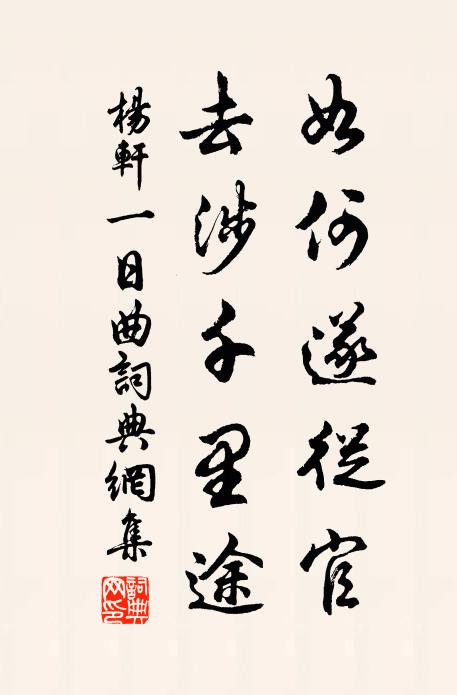 如何遂從官
去涉千里途
楊軒一日曲詞典網集
詞典网印